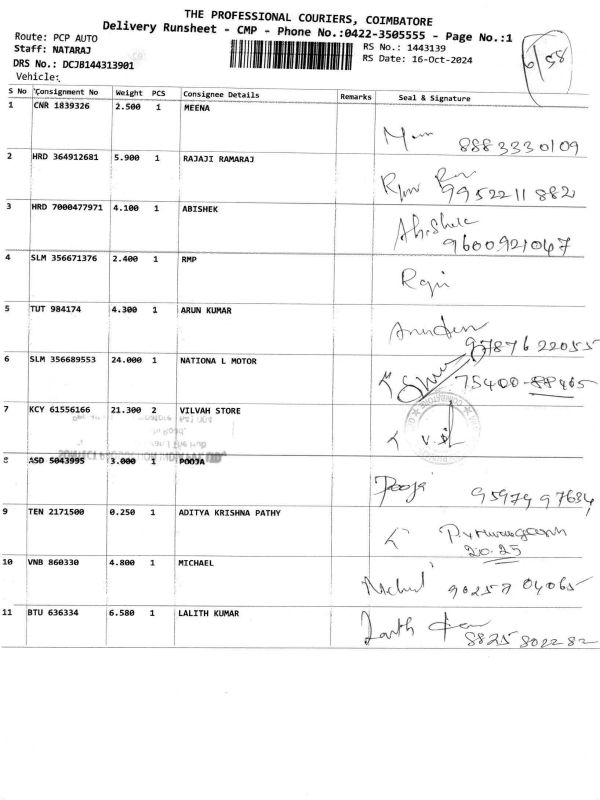 THE PROFESSIONAL COURIERS, COIMBATORE
Delivery Runsheet - CMP - Phone No.:0422-3505555 - Page No.:1
Route: PCP AUTO
Staff: NATARAJ
DRS No.: DCJB144313901
Vehicle:
RS No.: 1443139
RS Date: 16-Oct-2024
6/58
S No Consignment No Weight PCS Consignee Details Remarks Seal & Signature
1 CNR 1839326 2.500 1 MEENA
8883330109
2 HRD 364912681 5.900 1 RAJAJI RAMARAJ
9952211882
3 HRD 7000477971 4.100 1 ABISHEK
Abishek
9600921047
4 SLM 356671376 2.400 1 RMP
5 TUT 984174 4.300 1 ARUN KUMAR
97876 22055
6 SLM 356689553 24.000 1 NATIONA L MOTOR
75400-88465
7 KCY 61556166 21.300 2 VILVAH STORE
8 ASD 5043995 3.000 1 POOJA
Pooja 9597497634
9 TEN 2171500 0.250 1 ADITYA KRISHNA PATHY
20.25
10 VNB 860330 4.800 1 MICHAEL
Michael 90257 04065
11 BTU 636334 6.580 1 LALITH KUMAR
8825802282